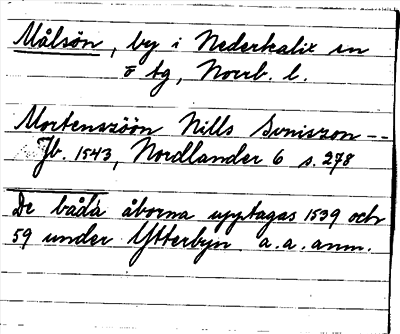 Målsön, by i Nederkalix sn
o tg, Norrb. l.
Mortenszöön Nills Svniszon --
Jb. 1543, Nordlander 6 s. 278
De båda åborna upptagas 1539 och
59 under Ytterbyn a.a. anm.